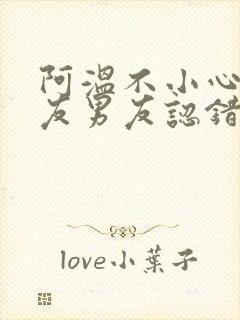 阿溫不小心
友男友認錯
love小葉子